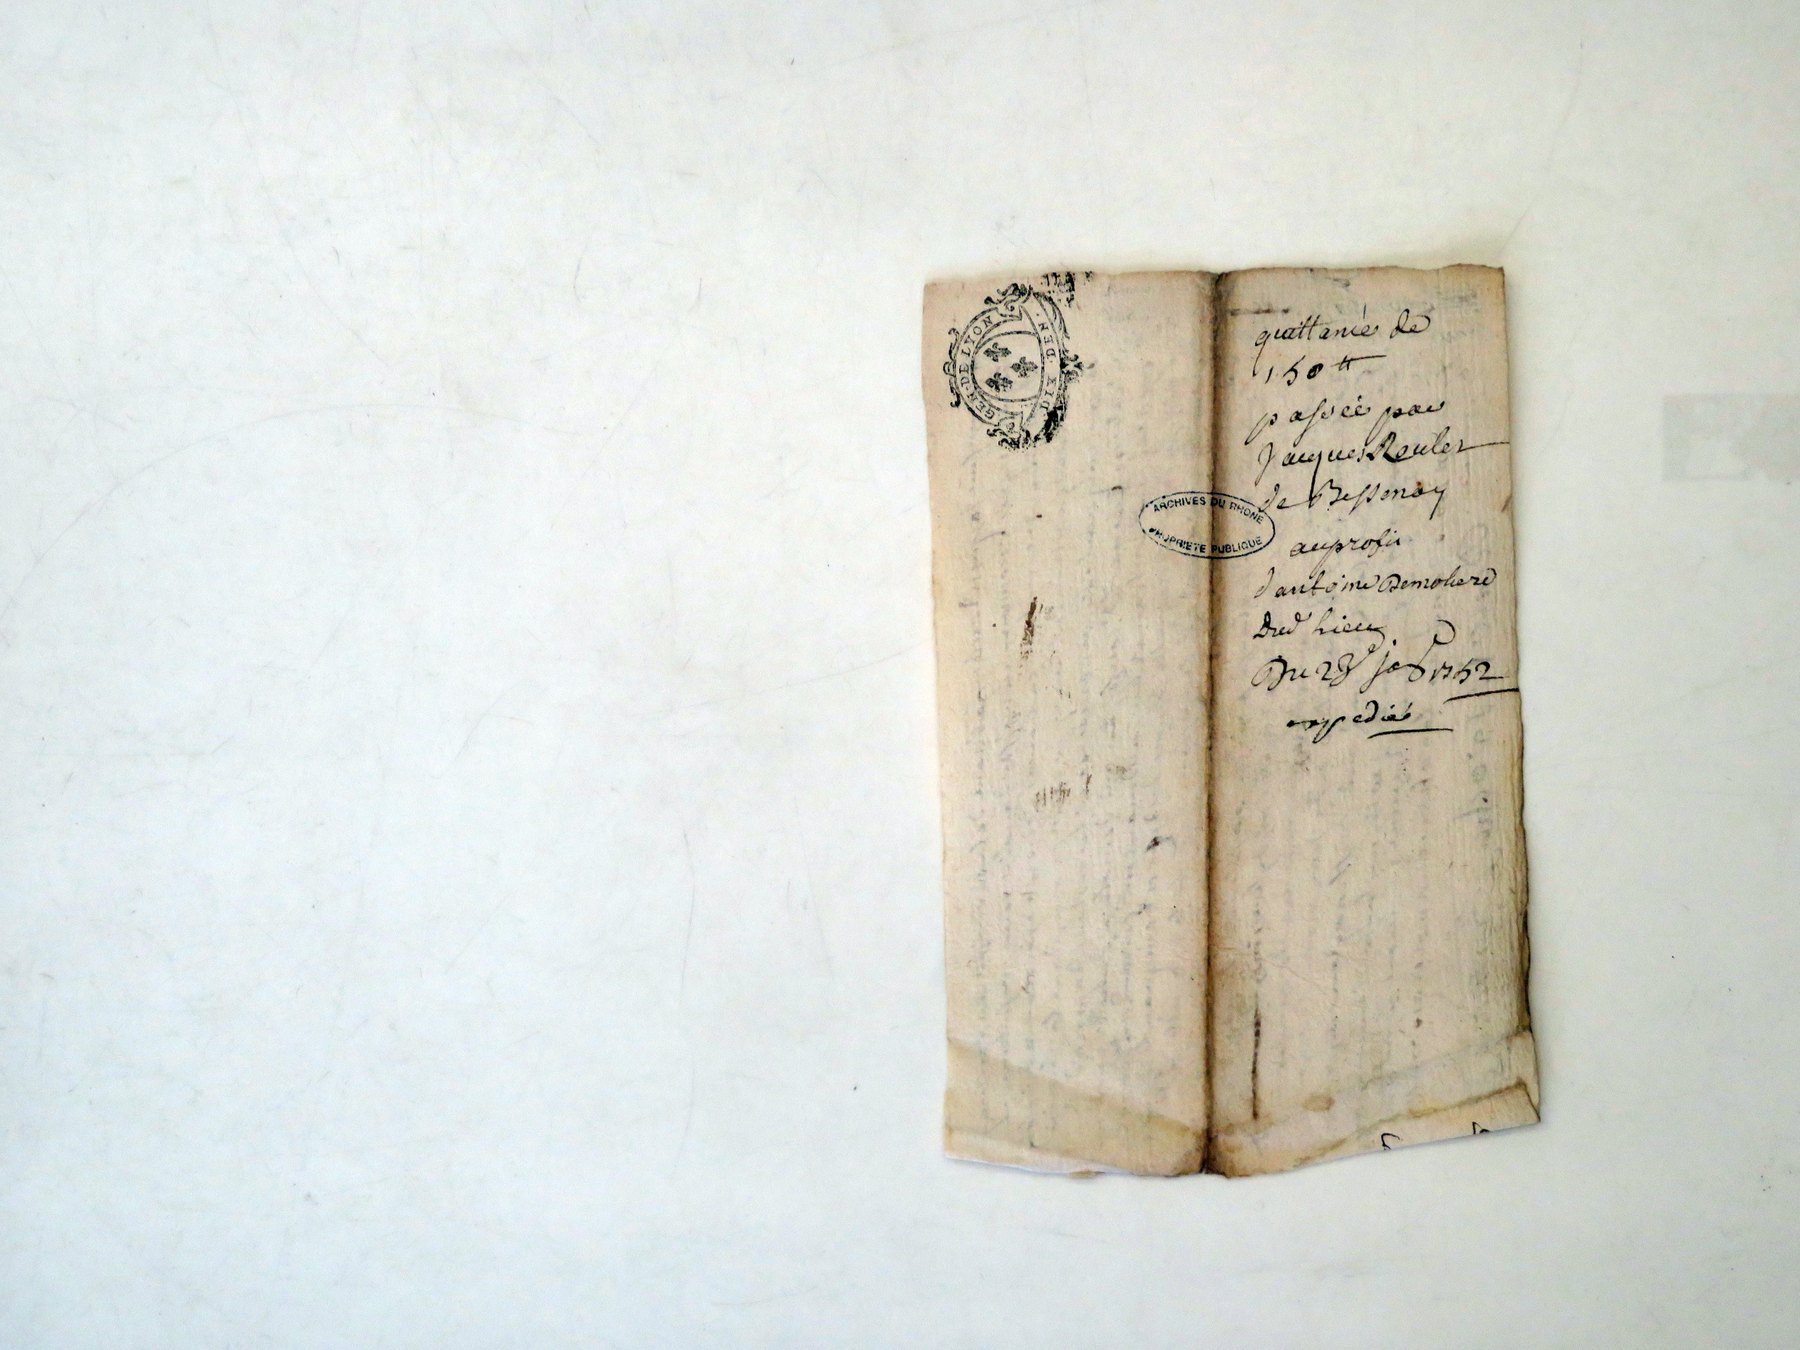 GEN·DE LYON
DIX DEN·
ARCHIVES DU RHONE
PROPRIETE PUBLIQUE
quittance de
150tt
passée par
Jacques Roulet
de Bessenay
au profit
d'antoine Demoliere
Dud lieu
Du 23e 1752
expediée